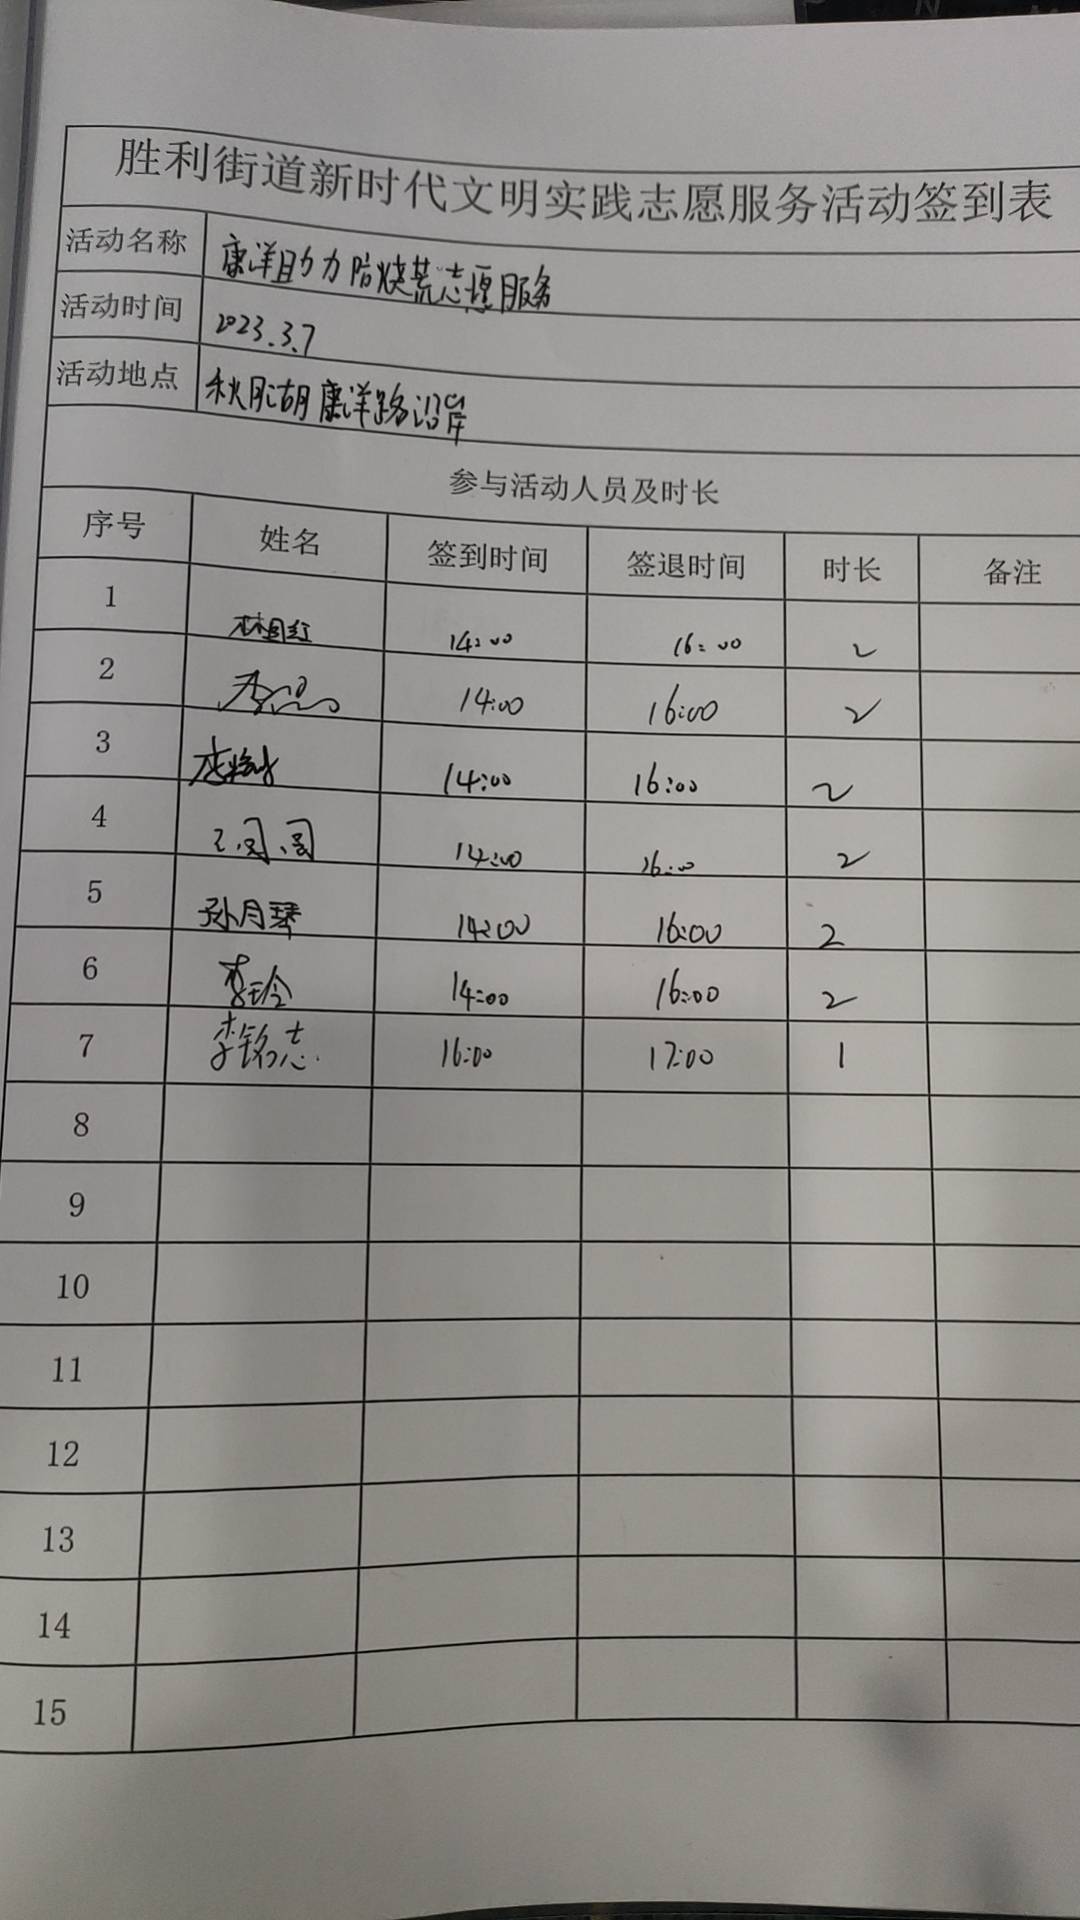 胜利街道新时代文明实践志愿服务活动签到表
活动名称 康洋助力防烧荒志愿服务
活动时间 2023.3.7
活动地点 秋月湖康洋路沿岸
参与活动人员及时长
序号 姓名 签到时间 签退时间 时长 备注
1 14:00 16:00 2
2 14:00 16:00 2
3 14:00 16:00 2
4 14:00 16:00 2
5 孙月琴 14:00 16:00 2
6 李玲 14:00 16:00 2
7 李铭志 16:00 17:00 1
8
9
10
11
12
13
14
15